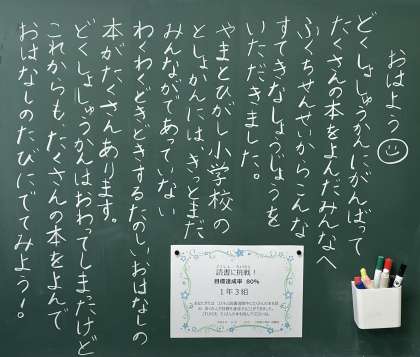 おはよう
どくしょしゅうかんにがんばって
たくさんの本をよんだみんなへ
ふくちせんせいからこんな
すてきなしょうじょうを
いただきました。
やまとひがし小学校の
としょかんには、きっとまだ
みんながであっていない
わくわくどきどきするたのしいおはなしの
本がたくさんあります。
どくしょしゅうかんはおわってしまったけど
これからも、たくさんの本をよんで
おはなしのたびにでてみよう!。
読書に挑戦!
目標達成率 80%
1年3組